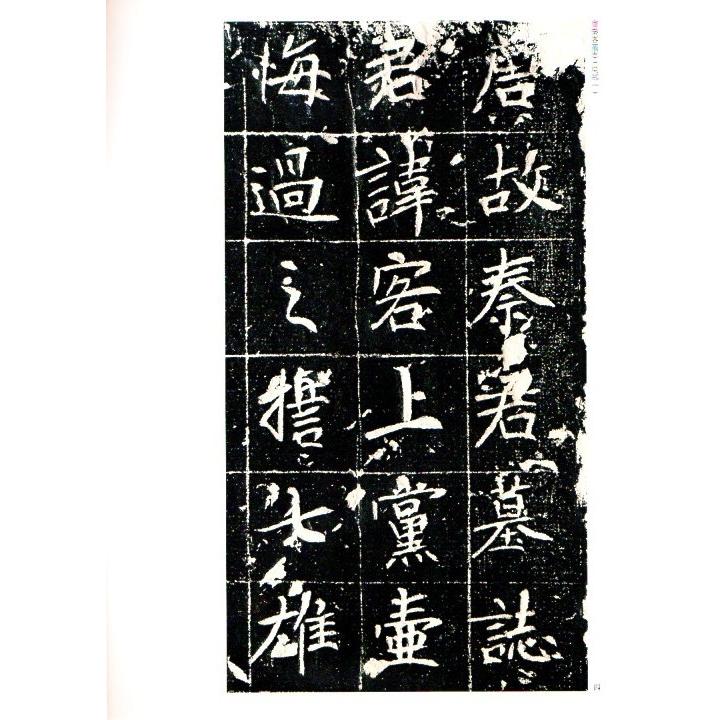 唐故秦君墓誌
君諱客上黨壷
悔過之誓大雄
四